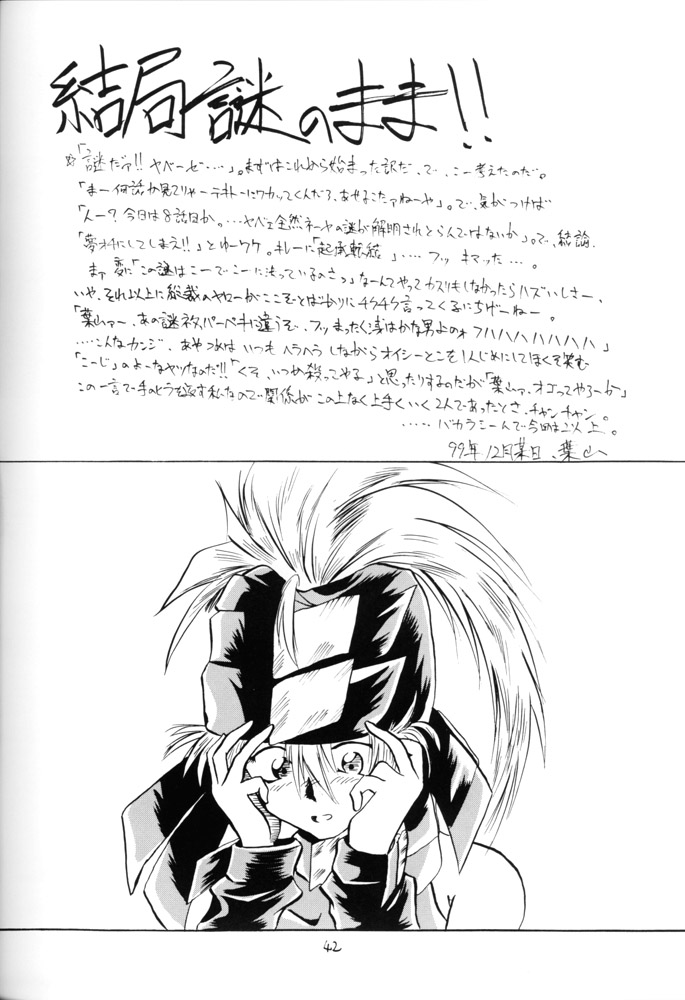 結局謎のまま!!
☆「謎だァ!! ヤベーぜ・・・・」。まずはこれから始まった訳だ、で、こー考えたのだ。
「まー何話か見てりゃーテキトーにワカッてくんだろ、あせるこたァねーや」。で、気がつけば
「んー?今日は8話目か。・・・ヤベェ全然ネーヤの謎が解明されとらんではないか」。で、結論、
「夢オチにしてしまえ!!」とゆーワケ。キレーに「起承転結」・・・・フッ キマッた・・・。
まァ変に「この謎はこーでこーに決っているのさっ」なーんてやってカスリもしなかったらハズいしさー、
いや、それ以上に総裁のヤローがここぞとばかりにチクチク言ってくるにちげーねー。
「葉山ァー、あの謎ネタ、パーペキに違うぞ、フッまったく浅はかな男よのォフハハハハハハハ」
・・・・こんなカンジ。あやつめは いつも ヘラヘラ しながらオイシーとこを1人じめにしてほくそ笑む
「こーじ」のよーなヤツなのだ!!「くそ、いつか殺ってやる」と思ったりするのだが「葉山ァ、オゴってやろーか」
この一言で手のひらを返す私なので関係が この上なく上手くいく2人であったとさ、チャンチャン。
・・・・・バカラニーんで今回は以上。
99年12月某日、葉山
42